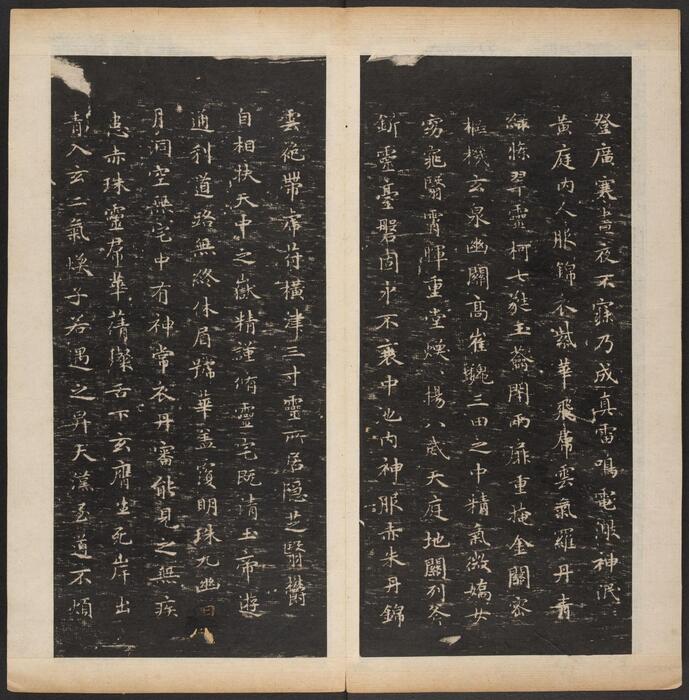 登廣裏晝夜不寐乃成真雷鳴電激神泯〻
黃庭內人服錦衣紫華飛帬雲氣羅丹青
綠條翠靈柯七蕤玉籥閉兩扉重掩金關密
樞機玄泉幽關高崔巍三田之中精氣微嬌女
窈窕翳霄暉重堂煥〻揚八威天庭地關列斧
斤靈臺磐固永不衰中池內神服赤朱丹錦
雲袍帶虎符橫津三寸靈所居隱芝翳鬱
自相扶天中之嶽精謹脩靈宅既清玉帝遊
通利道路無終休眉號華蓋覆明珠九幽日
月洞空無宅中有神常衣丹審能見之無疾
患赤珠靈帬華蒨粲舌下玄膺生死岸出
青入玄二氣煥子若遇之昇天漢至道不煩